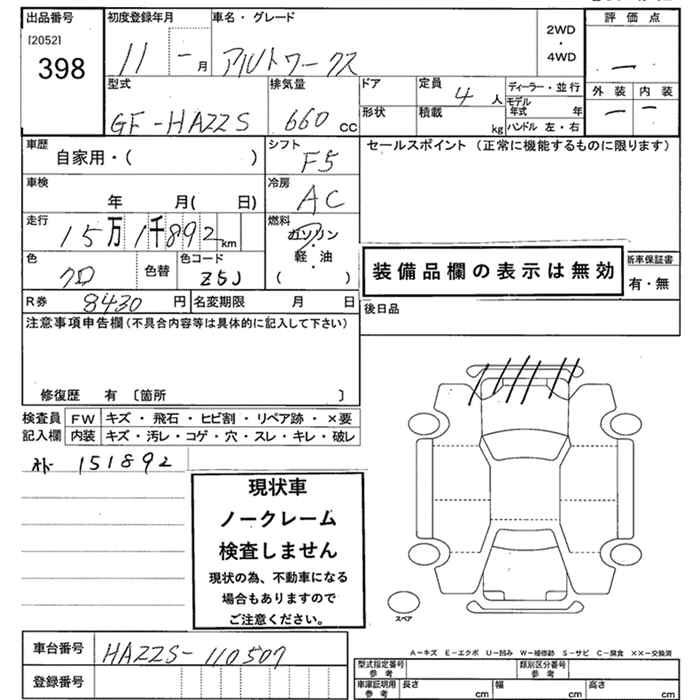 出品番号
[2052]
398
初度登録年月
11 - 月
車名・グレード
アルトワークス
2WD
・
4WD
評価点
—
外装 内装
— —
型式
GF-HA22S
排気量
660 CC
ドア
形状
定員
4 人
積載
kg
ディーラー・並行
モデル年式 年
ハンドル 左・右
車歴
自家用・( )
シフト
F5
セールスポイント (正常に機能するものに限ります)
車検
年 月( 日)
冷房
AC
走行
15万1千892km
燃料
ガソリン
・
軽・油
( )
色
クロ
色替
色コード
Z5J
装備品欄の表示は無効
新車保証書
有・無
R券 8430 円
名変期限 月 日
後日品
注意事項申告欄(不具合内容等は具体的に記入して下さい)
修復歴 有 〔箇所 〕
検査員
記入欄
FW キズ・飛石・ヒビ割・リペア跡・×要
内装 キズ・汚レ・コゲ・穴・スレ・キレ・破レ
151892
現状車
ノークレーム
検査しません
現状の為、不動車になる
場合もありますので
ご注意ください。
スペア
A-キズ E-エクボ U-凹み W-補修跡 S-サビ C-腐食 ××-交換済
車台番号 HA22S-110507
登録番号
型式指定番号
参考
類別区分番号
参考
車庫証明用
参考
長さ cm 幅 cm 高さ cm